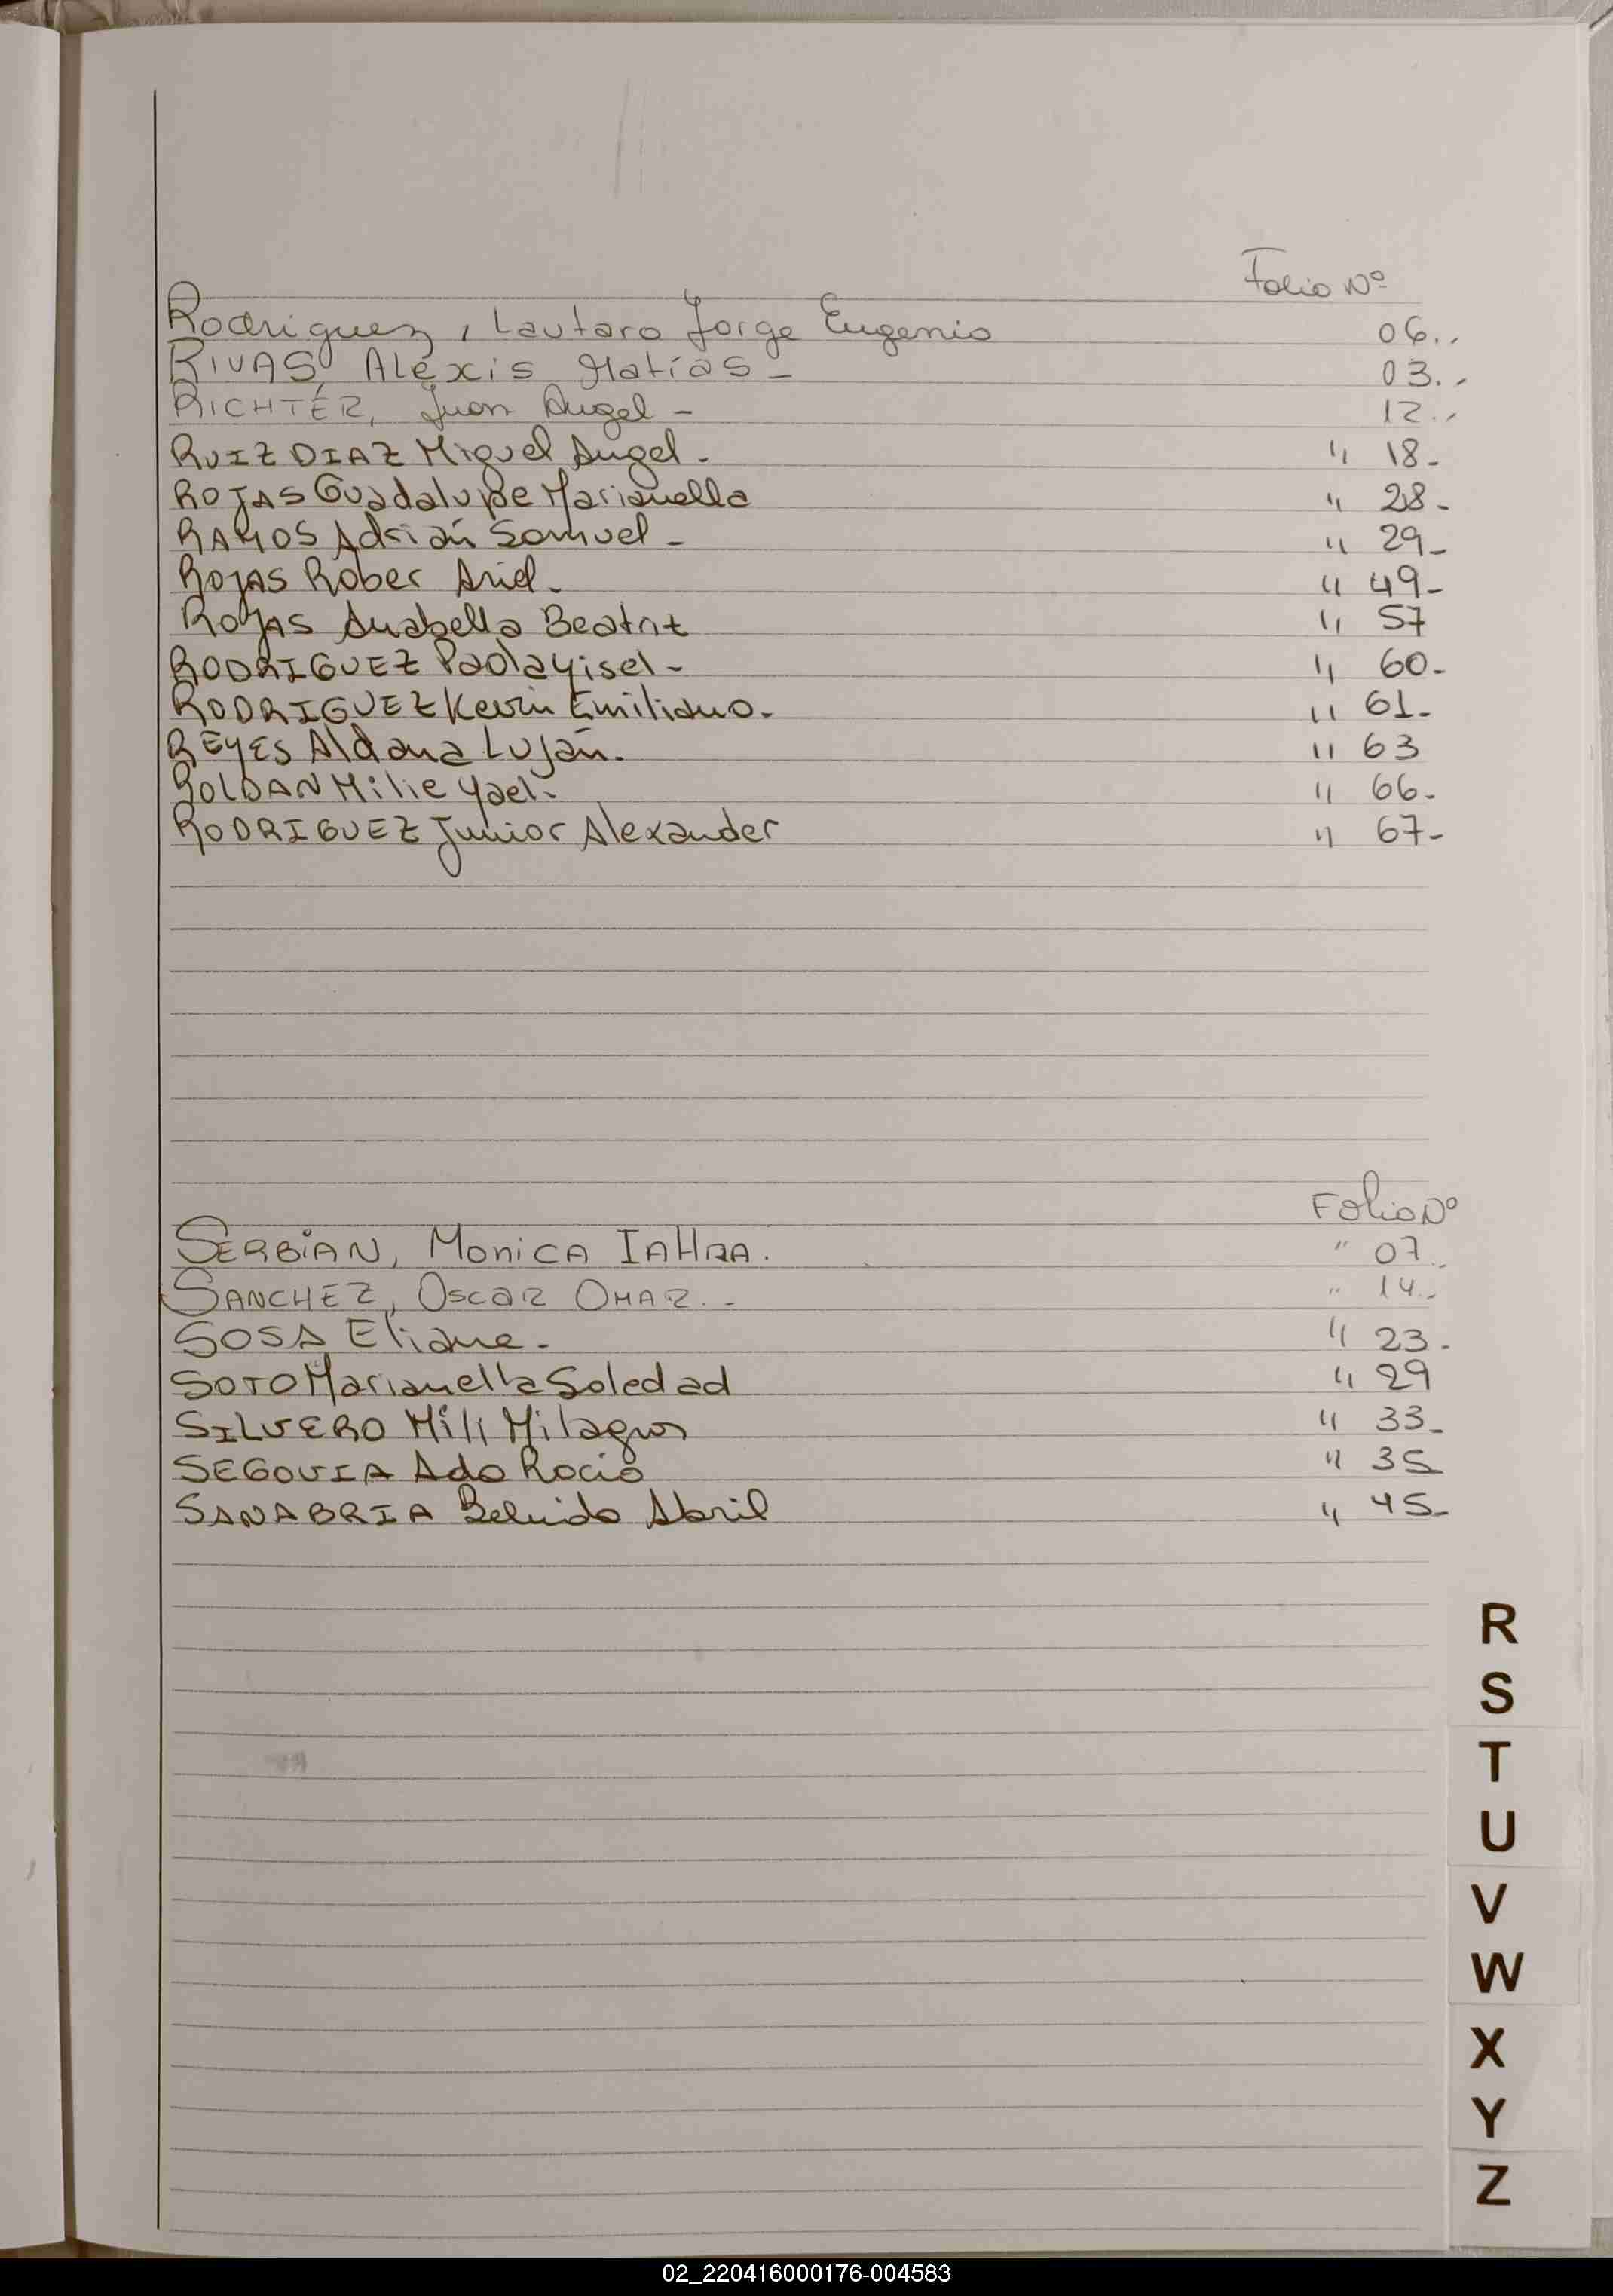 Folio Nº
Rodriguez, Lautaro Jorge Eugenio 06..
RIVAS, Alexis Matías - 03..
RICHTER, Juan Angel - 12..
RUIZ DIAZ Miguel Angel. " 18-
ROJAS Guadalupe Marianella " 28-
RAMOS Adrián Samuel - " 29-
ROJAS Rober Ariel. " 49-
ROJAS Anabella Beatriz " 57
RODRIGUEZ Paola Yisel - " 60-
RODRIGUEZ Kevin Emiliano. " 61-
REYES Aldana Luján. " 63
ROLDAN Milie Yael. " 66-
RODRIGUEZ Junior Alexander " 67-
Folio Nº
SERBIAN, MONICA " 07..
SANCHEZ, OSCAR OMAR.- " 14..
SOSA Eliane - " 23-
SOTO Marianella Soledad " 29
SILVERO Mili Milagros " 33-
SEGOVIA Ada Rocio " 35
SANABRIA Abril " 45-
R
S
T
U
V
W
X
Y
Z
02_220416000176-004583